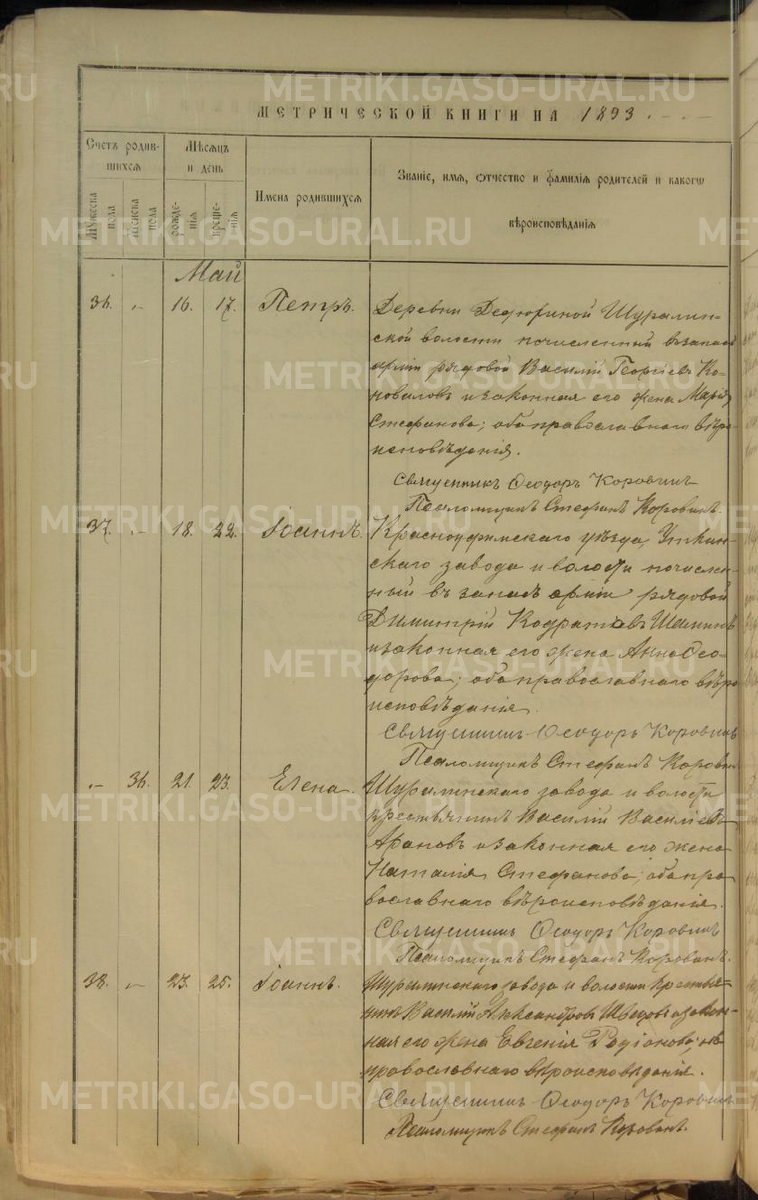 МЕТРИЧЕСКОЙ КНИГИ НА 1893.
Счетъ родив-
шихся
Мѣсяцъ
и день
Имена родившихся
Званіе, имя, отчество и фамилія родителей и какого
вѣроисповѣданія
Мужеска
пола
Женска
пола
рожде-
нія
креще-
нія
Май
36. „ 16. 17. Петръ.
Деревни Дедюгиной Шуралин-
ской волости почисленный въ запасъ
арміи рядовой Василій Георгіевъ Ко-
новаловъ и законная его жена Марія
Стефанова; оба православнаго вѣро-
исповѣданія.
Священникъ Ѳеодоръ Коровинъ
Псаломщикъ Стефанъ Коровинъ.
37. „ 18. 22. Іоаннъ.
Красноуфимскаго уѣзда, Уткин-
скаго завода и волости почислен-
ный въ запасъ арміи рядовой
Димитрій Кодратовъ
и законная его жена Анна Ѳео-
дорова; оба православнаго вѣро
исповѣданія.
Священникъ Ѳеодоръ Коровинъ
Псаломщикъ Стефанъ Коровинъ
„ 36. 21. 23. Елена.
Шуралинскаго завода и волости
крестьянинъ Василій Василіевъ
Араповъ и законная его жена
Наталія Стефанова; оба пра
вославнаго вѣроисповѣданія.
Священникъ Ѳеодоръ Коровинъ
Псаломщикъ Стефанъ Коровинъ.
38. „ 23. 25. Іоаннъ.
Шуралинскаго завода и волости крестья-
нинъ Василій Александровъ Шведовъ и закон-
ная его жена Евгенія Родіонова;
православнаго вѣроисповѣданія.
Священникъ Ѳеодоръ Коровинъ
Псаломщикъ Стефанъ Коровинъ.
METRIKI.GASO-URAL.RU